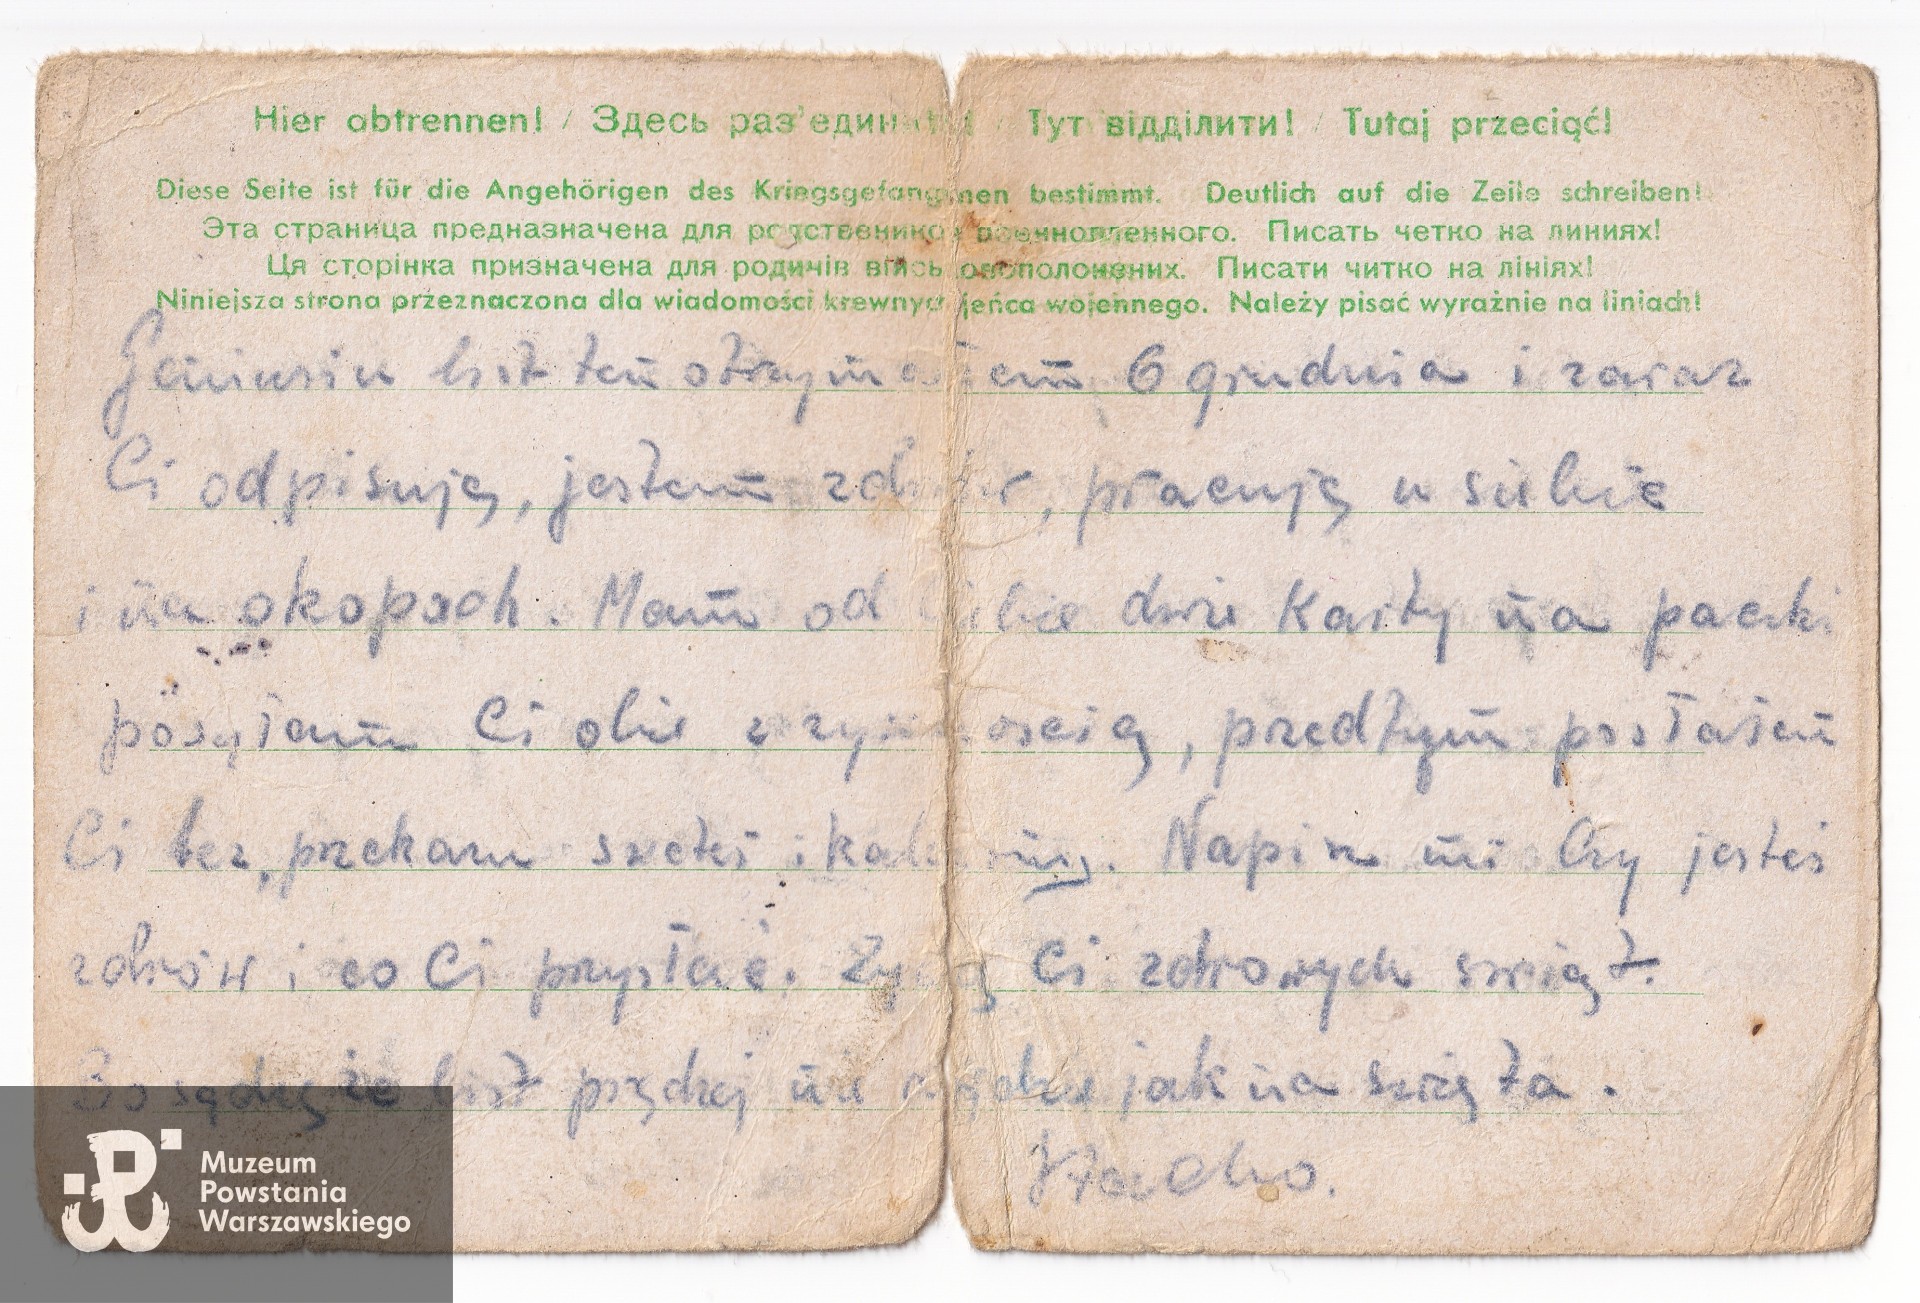 Hier abtrennen! / Здесь раз'единить! / Тут відділити! / Tutaj przeciąć!
Diese Seite ist für die Angehörigen des Kriegsgefangenen bestimmt. Deutlich auf die Zeile schreiben!
Эта страница предназначена для родственников военнопленного. Писать четко на линиях!
Ця сторінка призначена для родичів військовополонених. Писати читко на лініях!
Niniejsza strona przeznaczona dla wiadomości krewnych jeńca wojennego. Należy pisać wyraźnie na liniach!
Geniusiu list ten otrzymałem 6 grudnia i zaraz
Ci odpisuję, jestem zdrów, pracuję u siebie
i na okopach. Mam od Ciebie dwie Karty na paczki
posyłam Ci obie z żywnością, przedtym posłałem
Ci bez przekazu swetr i kalesony. Napisz mi Czy jesteś
zdrów i co Ci przysłać. Życzę Ci zdrowych świąt.
Bo sądzę że list prędzej nie dojdzie jak na święta.
Stacho.
Muzeum
Powstania
Warszawskiego